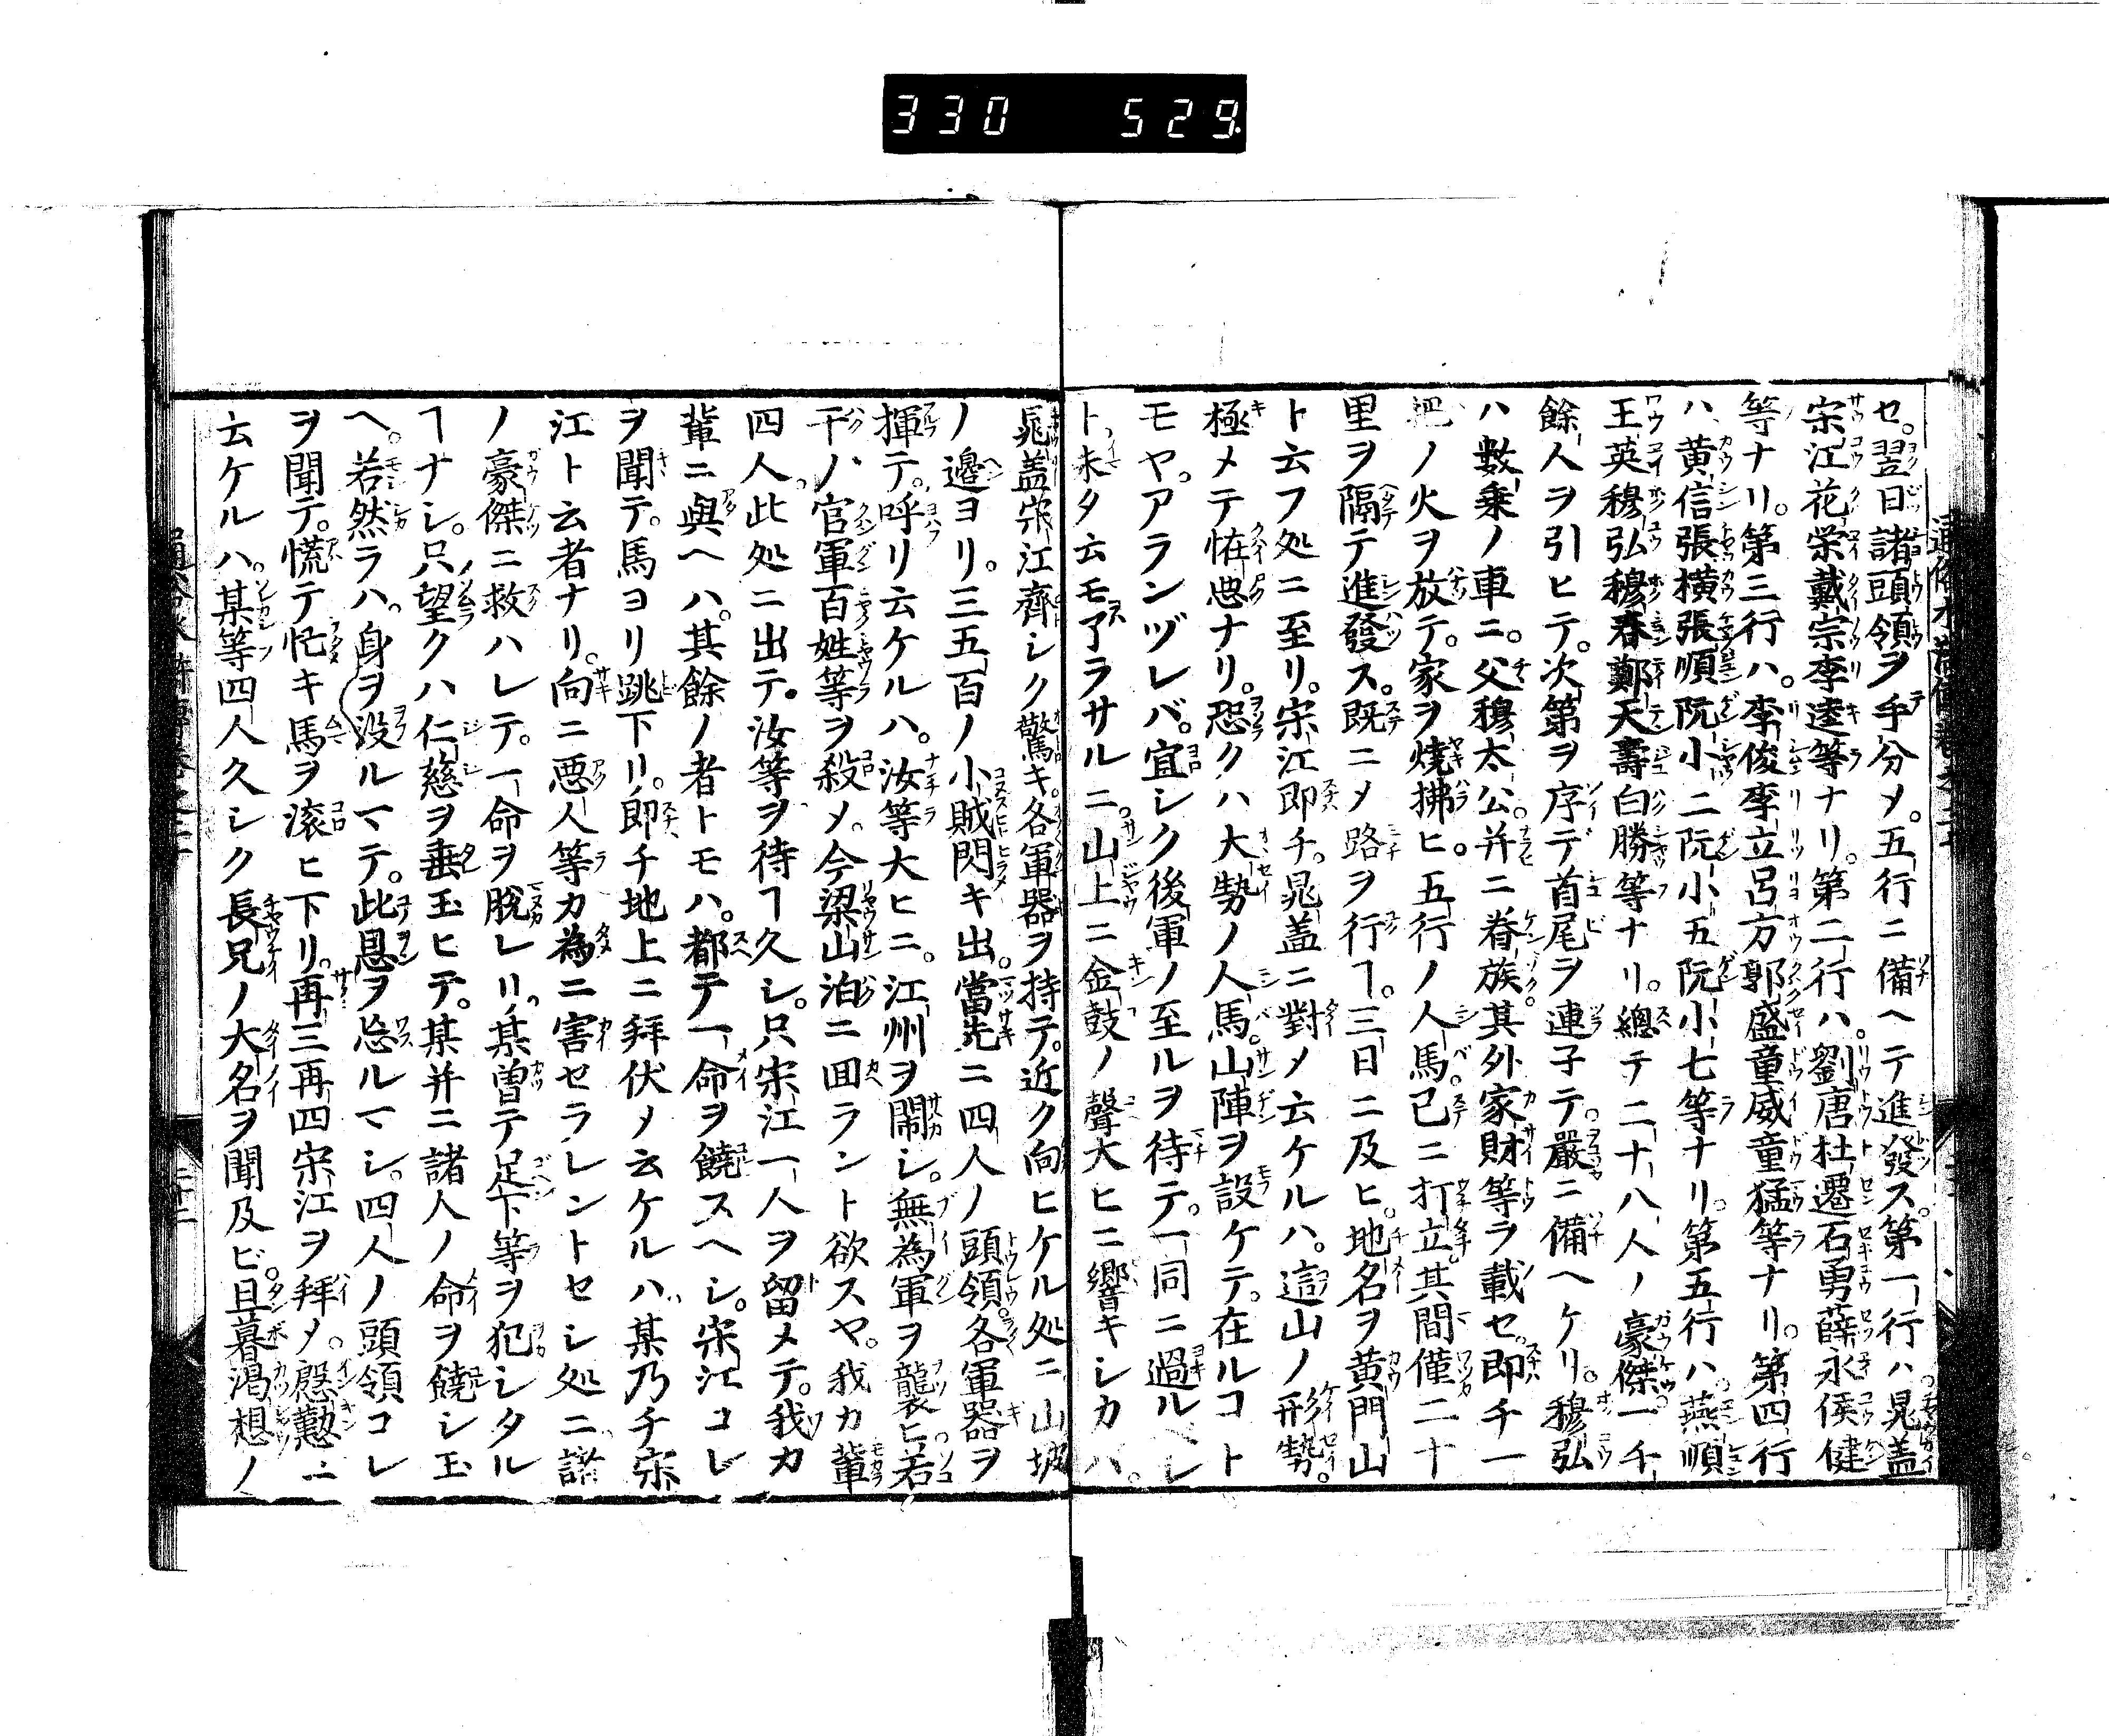 330 529
セ。翌日諸頭領ヲ手分メ。五行ニ備ヘテ進發ス。第一行ハ。晁盖
宋江花榮戴宗李逵等ナリ。第二行ハ。劉唐杜遷石勇薛永侯健
等ナリ。第三行ハ。李俊李立呂方郭盛童威童猛等ナリ。第四行
ハ。黄信張横張順阮小二阮小五阮小七等ナリ。第五行ハ。燕順
王英穆弘穆春鄭天壽白勝等ナリ。總テ二十八人ノ豪傑一千
餘人ヲ引ヒテ。次第ヲ序デ首尾ヲ連子テ。嚴ニ備ヘケリ。穆弘
ハ數乗ノ車ニ。父穆太公。并ニ眷族其外家財等ヲ載セ。即チ一
把ノ火ヲ放テ。家ヲ燒拂ヒ。五行ノ人馬。已ニ打立其間僅二十
里ヲ隔テ進發ス。既ニメ路ヲ行ヿ。三日ニ及ヒ。地名ヲ黄門山
ト云フ処ニ至リ。宋江即チ。晁盖ニ對メ云ケルハ。這山ノ形勢。
極メテ恠悪ナリ。恐クハ大勢ノ人馬。山陣ヲ設ケテ。在ルコト
モヤ。アランヅレバ。宜シク後軍ノ至ルヲ待テ。一同ニ過ルベシ
ト未タ云モ了ラサルニ。山上ニ金鼓ノ聲大ヒニ響キシカハ。
晁盖宋江齊シク驚キ。各軍器ヲ持テ。近ク向ヒケル処ニ山坡
ノ邉ヨリ。三五百ノ小賊閃キ出。當先ニ四人ノ頭領。各軍器ヲ
揮テ。呼リ云ケルハ。汝等大ヒニ。江州ヲ閙シ。無為軍ヲ襲ヒ若
干ノ官軍百姓等ヲ殺メ。今梁山泊ニ囬ラント欲スヤ。我カ輩
四人。此処ニ出テ。汝等ヲ待ヿ久シ。只宋江一人ヲ留メテ。我カ
輩ニ與ヘハ。其餘ノ者トモハ。都テ一命ヲ饒スヘシ。宋江コレ
ヲ聞テ。馬ヨリ跳下リ。即チ地上ニ拜伏メ云ケルハ。某乃チ宋
江ト云者ナリ。向ニ悪人等カ為ニ害セラレントセシ処ニ諮
ノ豪傑ニ救ハレテ。一命ヲ脱レリ。某曽テ足下等ヲ犯シタル
ヿナシ。只望クハ仁慈ヲ垂玉ヒテ。某并ニ諸人ノ命ヲ饒シ玉
ヘ。若然ラハ。身ヲ没ルマテ。此恩ヲ忘ルマシ。四人ノ頭領コレ
ヲ聞テ。慌テ忙キ馬ヲ滚ヒ下リ。再三再四宋江ヲ拜メ。慇懃ニ
云ケルハ。某等四人久シク長兄ノ大名ヲ聞及ビ。旦暮渇想ノ